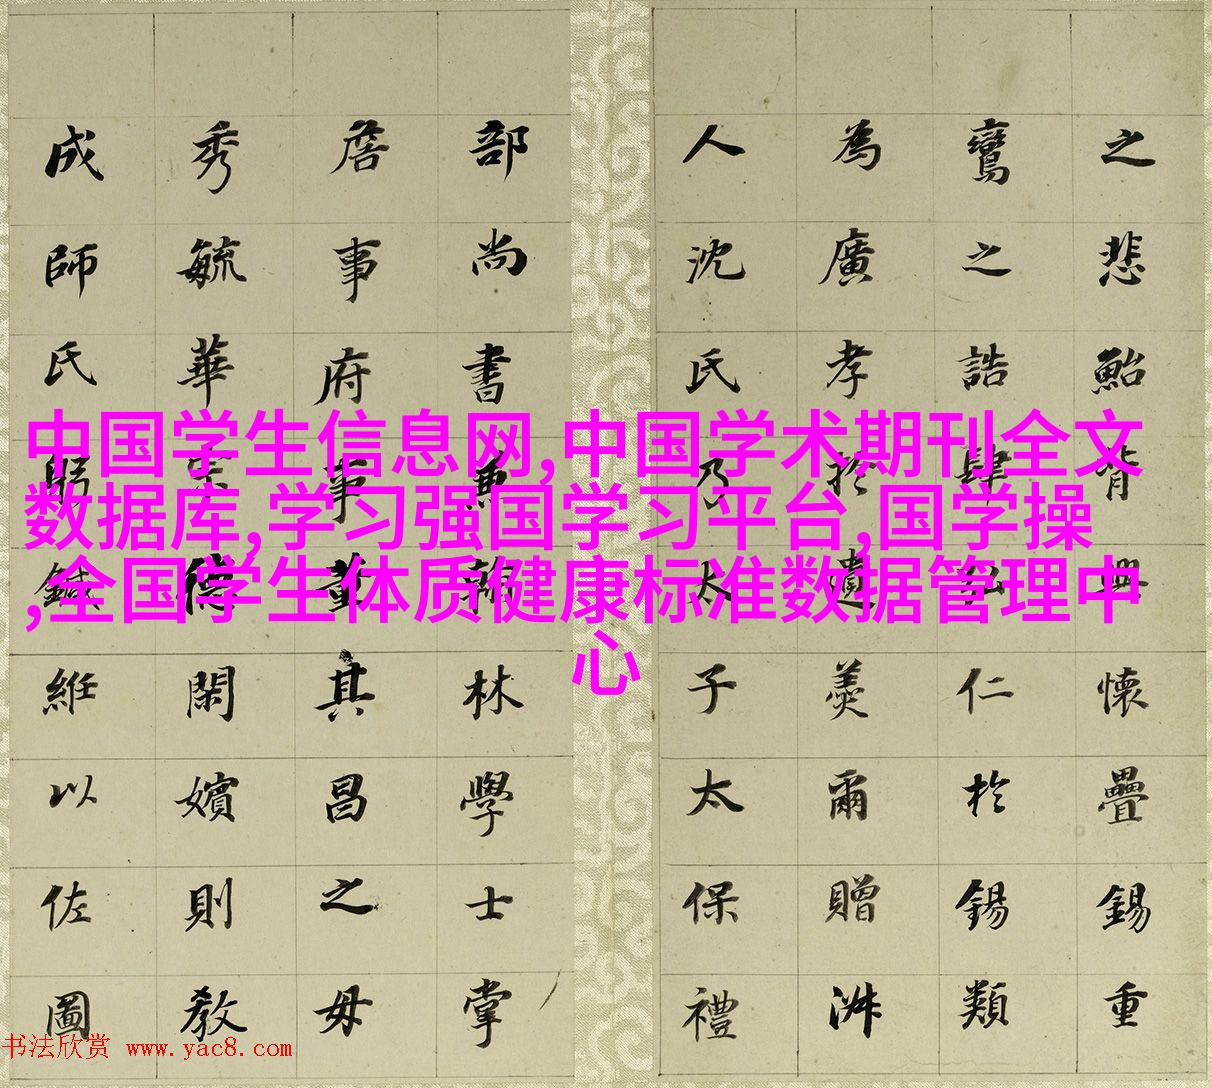 之悲鮐背興懷疊錫重
鸞之誥肆弘仁於錫類
為廣孝於遺羮爾贈淑
人沈氏乃太子太保禮
部尚書兼翰林學士掌
詹事府事董其昌之毋
秀毓華宗德閑嬪則教
成師氏躬鍼絍以佐圖
中国学生信息网,中国学术期刊全文
数据库,学习强国学习平台,国学操
,全国学生体质健康标准数据管理中
心
书法欣赏 www.yac8.com